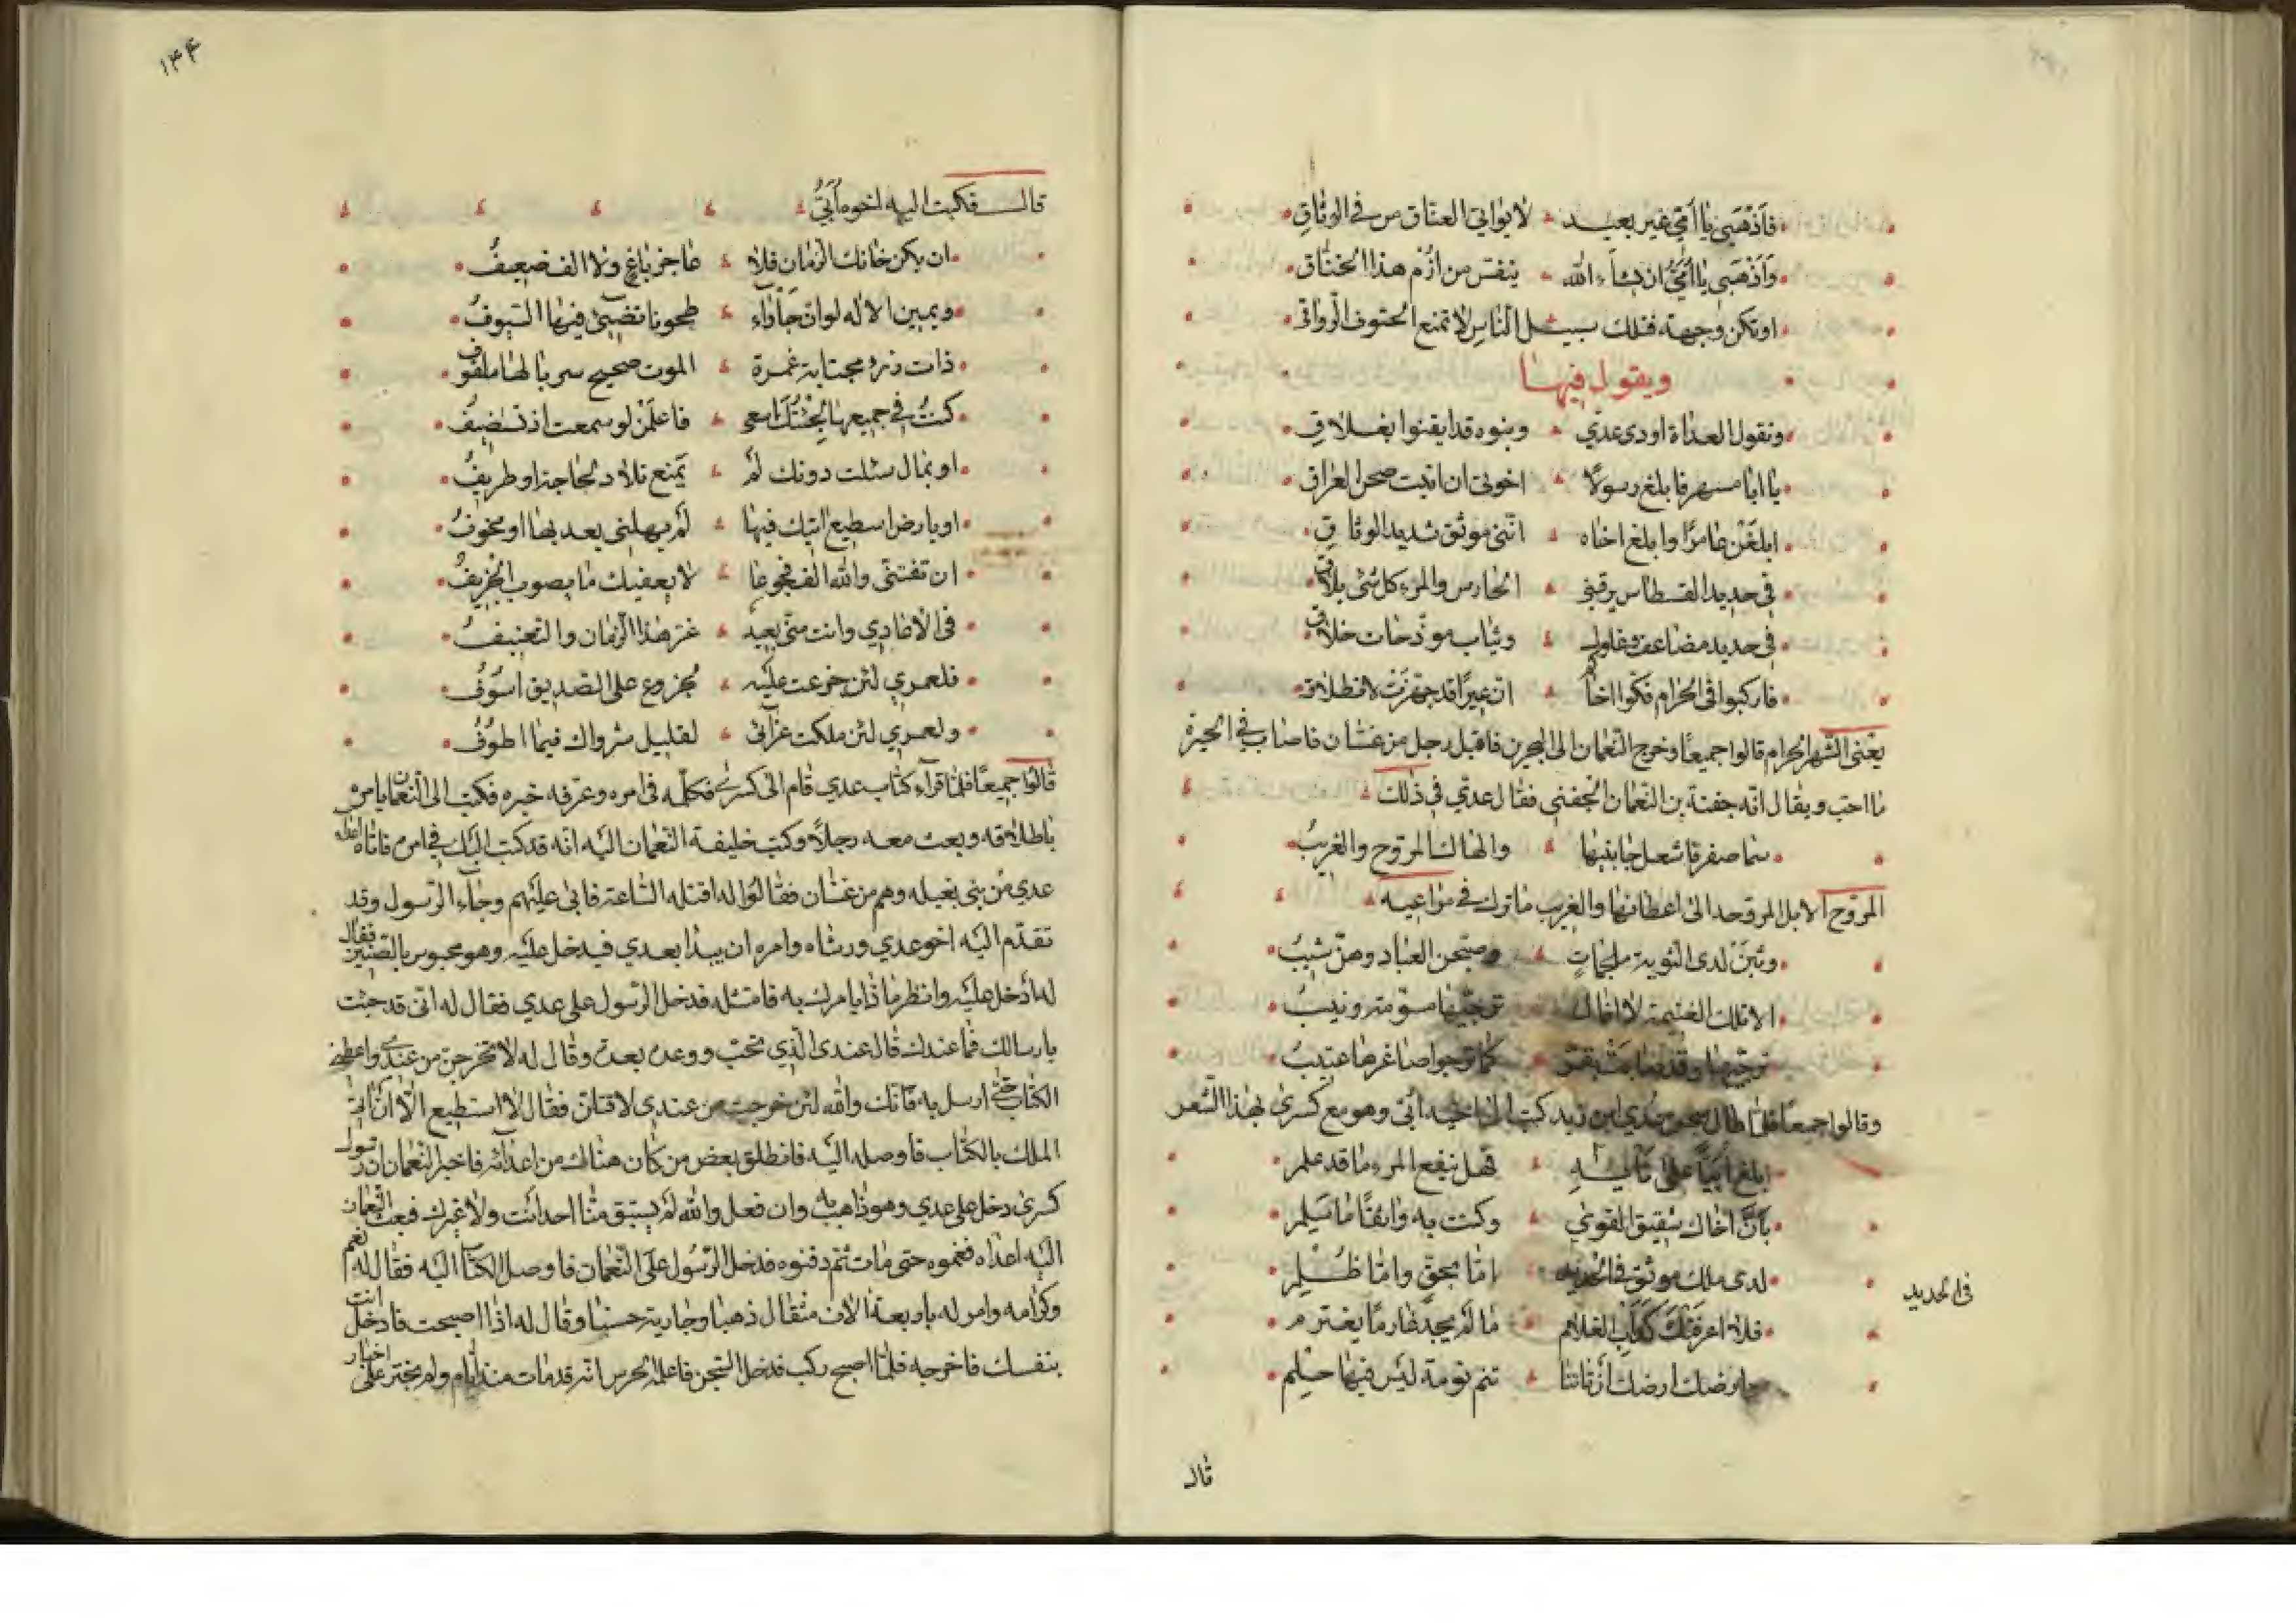 فاذهبي يا اميّ غير بعيد لا يواتي العناق من في الوثاق
واذهبي يا اميّ ان يشاء الله ينفس من ازم هذا الخناق
او تكن وجهة فتلك سبيل الناس لا تمنع الحتوف الرواقي
ويقول فيها
وتقول العداة اودى عدي وبنوه قد ايقنوا بغلاق
يا ابا مسهر فابلغ رسولا اخوتي ان اتيت صحن العراق
ابلغن عامرا وابلغ اخاه انني موثق شديد الوثاق
في حديد القسطاس يرقبني الحارس والمرء كل شئ يلاقي
في حديد مضاعف وغلول وثياب منضحات خلاق
فاركبوا في الحرام فكوا اخاكم ان عيرا قد جهزت لانطلاق
يعني الشهر الحرام قالوا جميعا وخرج النعمان الى البحرين فاقبل رجل من غسان فاصاب في الحيرة
ما احب ويقال انه جفنة بن النعمان الجفني فقال عدي في ذلك
سما صقر فاشعل جانبيها والهاك المروح والغريب
المروح الابل المروحة الى اعطانها والغريب ما ترك في مراعيه
وثبن لدى الثوية ملجمات وصبحن العباد وهن شيب
الا تلك الغنيمة لا افال ترجيها مسومة ونيب
ترجيها وقد كما ترجو اصاغرها عتيب
وقالوا جميعا فلما طال سجن عدي ابن زيد كتب الى اخيه ابي وهو مع كسرى بهذا الشعر
ابلغ ابيا على نايه فهل ينفع المرء ما قد علم
بان اخاك شقيق الفؤاد وكنت به واثقا ما سلم
لدى ملك موثق في الحديد اما بحق واما ظلم
في الحديد
فلا اعرفنك كداب الغلام ما لم يجد عارما يعترم
فارضك ارضك ان تاتنا تنم نومة ليس فيها حلم
قال
١٤٤
قال فكتب اليه اخوه ابي
ان يكن خانك الزمان فلا عاجز باغ ولا الف ضعيف
ويمين الاله لو ان جأواء طحونا تضيئ فيها السيوف
ذات رز مجتابة غمرة الموت صحيح سربالها ملفوف
كنت في جميعها لجئتك اسعى فاعلمن لو سمعت اذ تستضيف
او بمال سئلت دونك لم يمنع تلاد لحاجة او طريف
او بارض اسطيع اتيك فيها لم يهلني بعد بها او مخوف
ان تفتني والله الف فجوعا لا يعقبك ما يصوب الخريف
في الاعادي وانت مني بعيد عز هذا الزمان والتعنيف
فلعمري لئن جزعت عليه لجزوع على الصديق اسوف
ولعمري لئن ملكت عزائي لقليل شرواك فيما اطوف
قالوا جميعا فلما قرآء كتاب عدي قام الى كسرى فكلمه في امره وعرفه خبره فكتب الى النعمان يامره
باطلاقه وبعث معه رجلا وكتب خليفة النعمان اليه انه قد كتب اليك في امره فاتاه اعداء
عدي من بني بقيله وهم من غسان فقالوا له اقتله الساعة فابى عليهم وجاء الرسول وقد
تقدم اليه اخو عدي ورشاه وامره ان يبدا بعدي فيدخل عليه وهو محبوس بالصنين فقال
له ادخل عليه وانظر ما ذا يامرك به فامتثله فدخل الرسول على عدي فقال له اني قد جئت
بارسالك فما عندك قال عندي الذي تحب ووعده بعدة وقال له لا تخرجن من عندي واعطني
الكتاب حتى ارسل به فانك والله لئن خرجت من عندي لاقتلن فقال لا استطيع الا ان اتي
الملك بالكتاب فاوصله اليه فانطلق بعض من كان هناك من اعدائه فاخبر النعمان ان رسول
كسرى دخل على عدي وهو ذاهب به وان فعل والله لم يستبق منا احدا انت ولا غيرك فبعث النعمان
اليه اعداه فغموه حتى مات ثم دفنوه فدخل الرسول على النعمان فاوصل الكتاب اليه فقال له نعم
وكرامه وامر له باربعة الاف مثقال ذهبا وجارية حسنا وقال له اذا اصبحت فادخل انت
بنفسك فاخرجه فلما اصبح ركب فدخل السجن فاعلمه الحرس انه قد مات منذ ايام ولم نجتر على اخبار